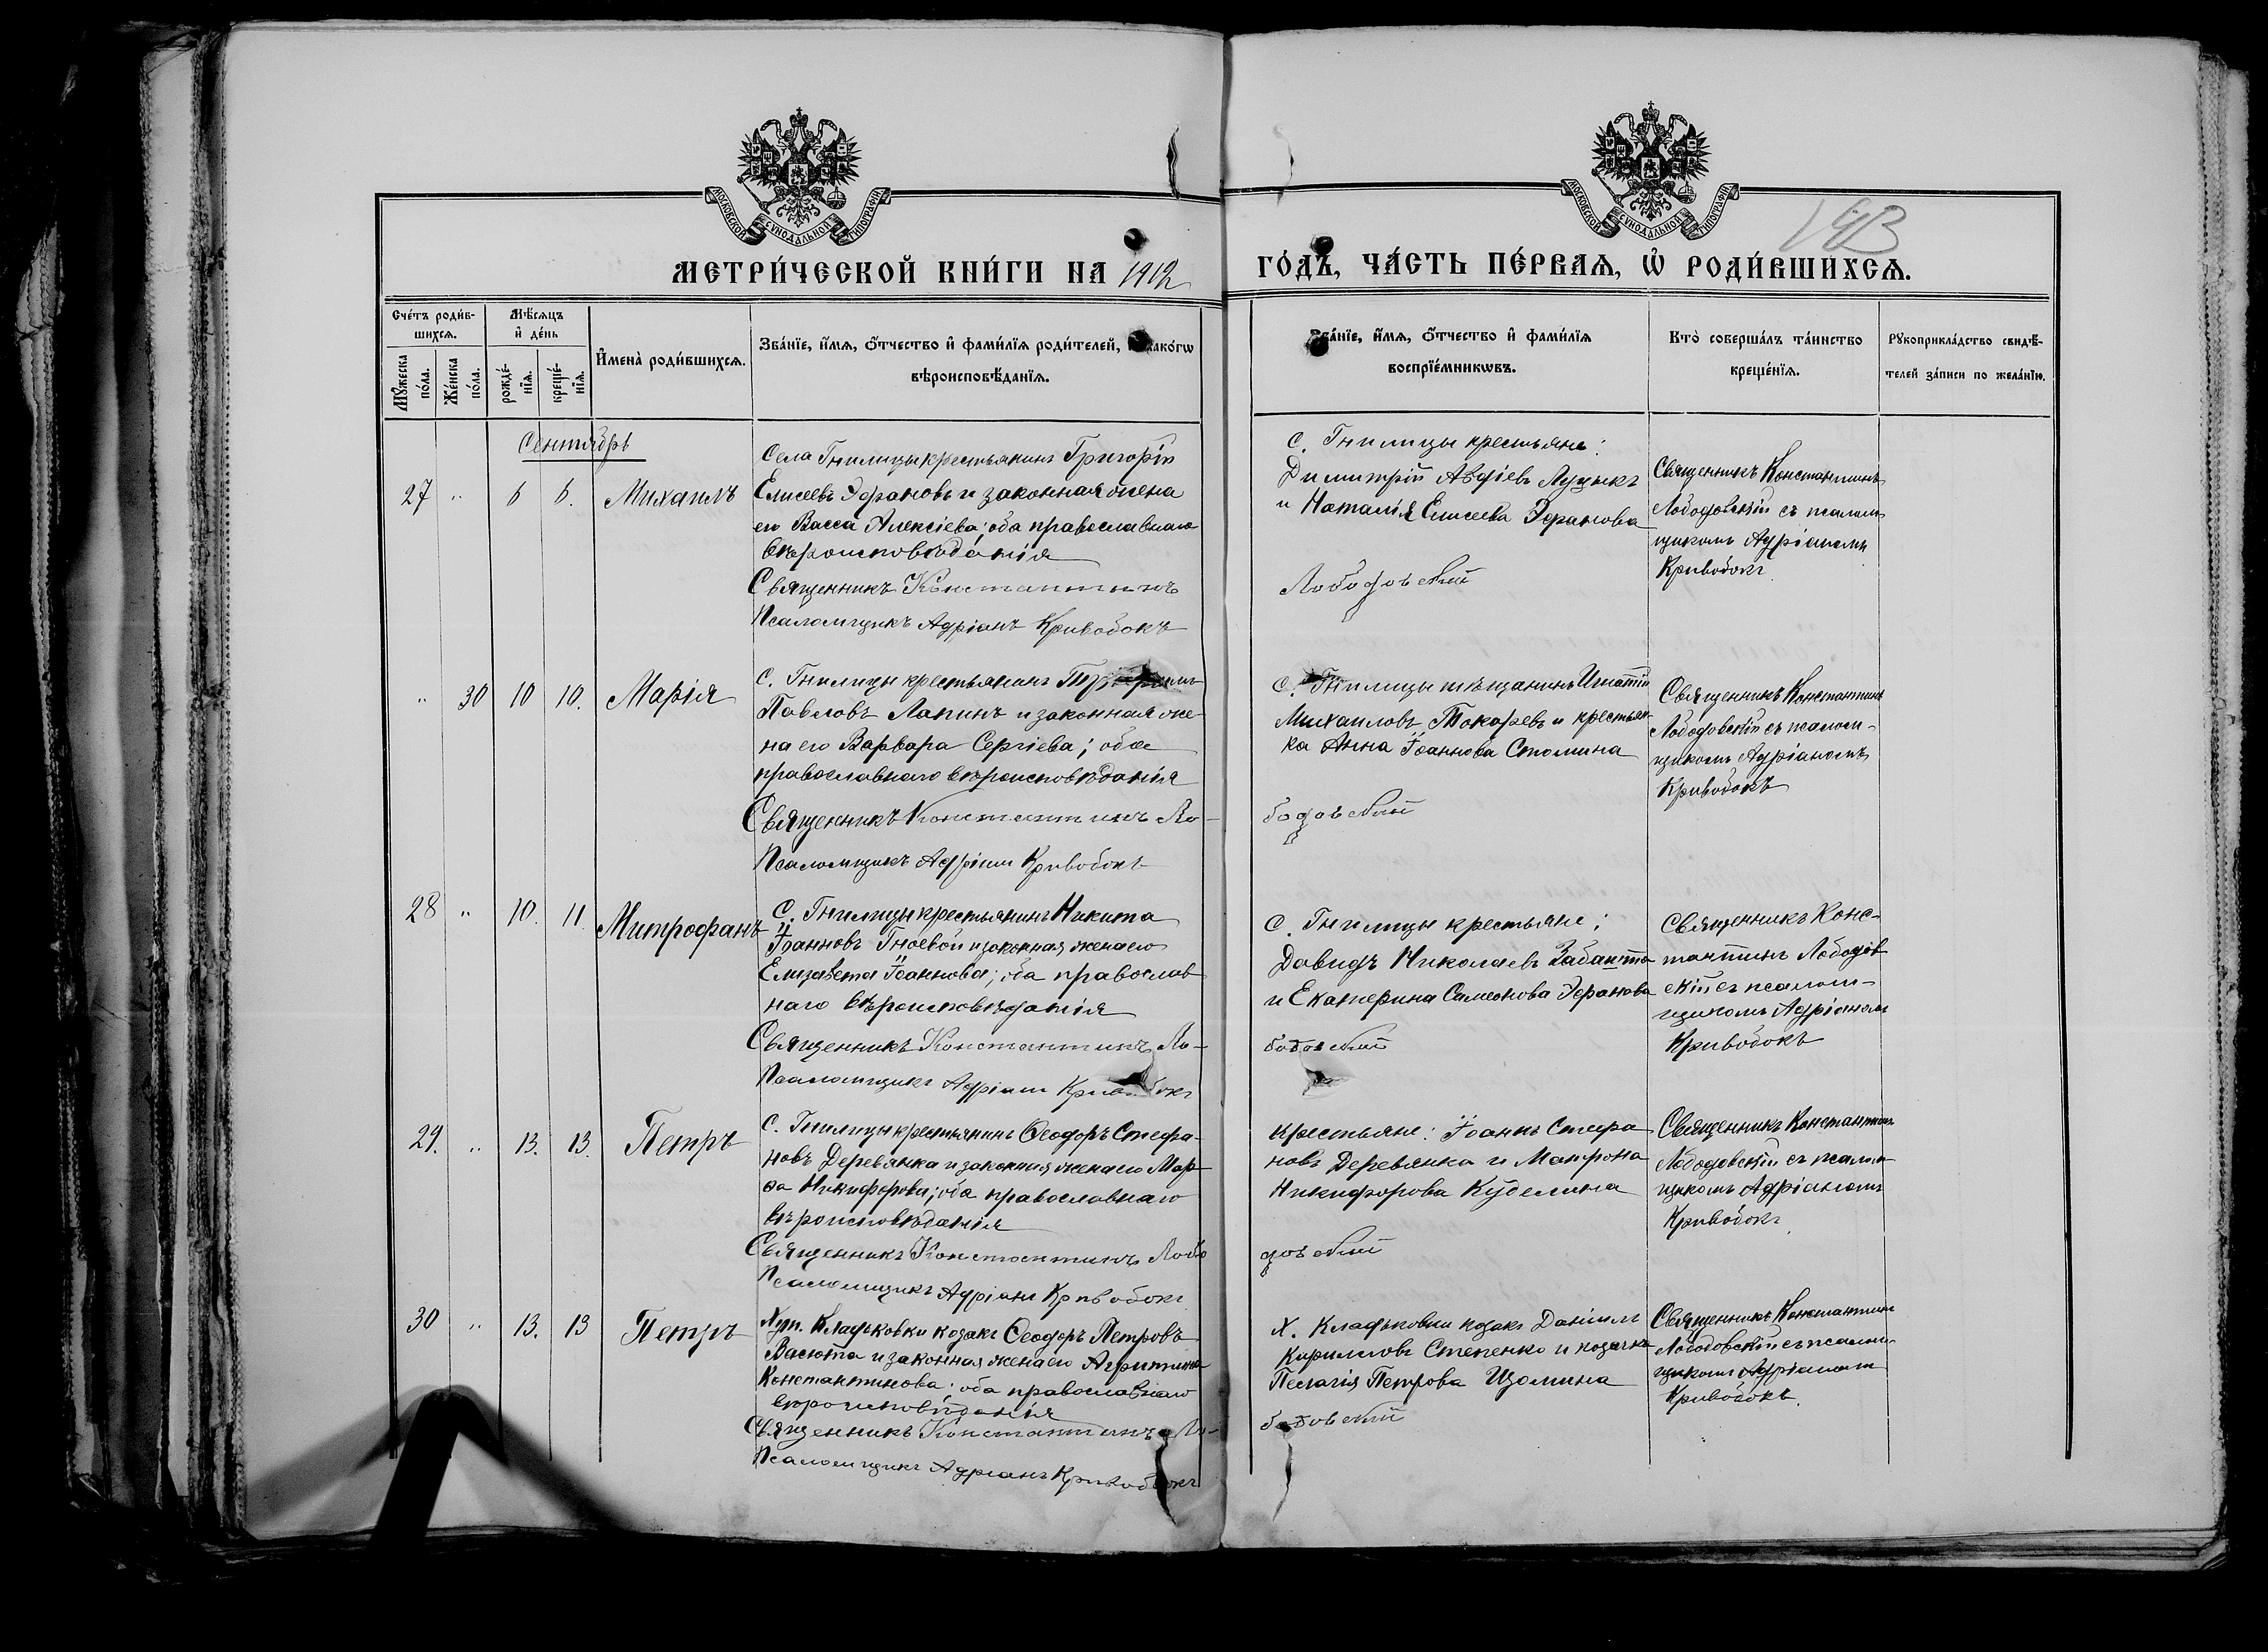 МОСКОВСКОЙ СѴНОДАЛЬНОЙ ТИПОГРАФІИ
МОСКОВСКОЙ СѴНОДАЛЬНОЙ ТИПОГРАФІИ
143
МЕТРИ́ЧЕСКОЙ КНИ́ГИ НА 1912 ГО́ДЪ, ЧА́СТЬ ПЕ́РВАѦ, Ѡ҆ РОДИ́ВШИХСѦ.
Сче́тъ роди́в-
шихсѧ.
Мѣ́сѧцъ
и҆ де́нь
Мꙋ́жеска
по́ла.
Же́нска
по́ла.
рожде́-
нїѧ.
креще́-
нїѧ.
И҆мена̀ роди́вшихсѧ.
Зва́нїе, и҆́мѧ, ѻ҆́тчество и҆ фами́лїѧ роди́телей, и҆ како́гѡ
вѣроисповѣ́данїѧ.
Зва́нїе, и҆́мѧ, ѻ҆́тчество и҆ фами́лїѧ
воспрїе́мникѡвъ.
Кто̀ соверша́лъ та́инство
креще́нїѧ.
Рꙋкоприкла́дство свидѣ́-
телей за́писи по жела́нїю.
Сентябрь
27 " 6 6. Михаилъ
Села Гнилицы крестьянинъ Григорій
Елисеевъ Эфрановъ и законная жена
его Васса Алексіева; оба православнаго
вѣроисповѣданія
Священникъ Константинъ
Псаломщикъ Адріанъ Кривобокъ
С. Гнилицы крестьяне:
Димитрій Авдіевъ Луцыкъ
и Наталія Елисеева Эфранова
Лободовскій
Священникъ Константинъ
Лободовскій съ псалом-
щикомъ Адріаномъ
Кривобокъ
" 30 10 10. Марія
С. Гнилицы крестьянинъ
Павловъ Лапинъ и законная же-
на его Варвара Сергіева; оба
православнаго вѣроисповѣданія
Священникъ Константинъ Ло-
Псаломщикъ Адріанъ Кривобокъ
С. Гнилицы мѣщанинъ Игнатій
Михаиловъ Токаревъ и крестьян-
ка Анна Іоаннова Стомина
бодовскій
Священникъ Константинъ
Лободовскій съ псалом-
щикомъ Адріаномъ
Кривобокъ
28 " 10. 11. Митрофанъ
С. Гнилицы крестьянинъ Никита
Іоанновъ Гноевой и законная жена его
Елизавета Іоаннова; оба православ
наго вѣроисповѣданія
Священникъ Константинъ Ло-
Псаломщикъ Адріанъ Кривобокъ
С. Гнилицы крестьяне:
Давидъ Николаевъ
и Екатерина Симеонова Эфранова
бодовскій
Священникъ Конс-
тантинъ Лободов
скій съ псалом-
щикомъ Адріаномъ
Кривобокъ
29. " 13. 13. Петръ
С. Гнилицы крестьянинъ Ѳеодоръ Стефа-
новъ Деревянка и законная жена его Мар-
ѳа Никифорова; оба православнаго
вѣроисповѣданія
Священникъ Константинъ Лобо
Псаломщикъ Адріанъ Кривобокъ
крестьяне: Іоаннъ Стефа
новъ Деревянка и Матрона
Никифорова Куделина
довскій
Священникъ Константинъ
Лободовскій съ псалом-
щикомъ Адріаномъ
Кривобокъ
30 " 13. 13 Петръ
Хут. Кладьковки козакъ Ѳеодоръ Петровъ
Васюта и законная жена его Агрипина
Константинова; оба православнаго
вѣроисповѣданія
Священникъ Константинъ Ло-
Псаломщикъ Адріанъ Кривобокъ
Х. Кладьковки козакъ Даніилъ
Кирилловъ Степенко и козачка
Пелагія Петрова Цомина
бодовскій
Священникъ Константинъ
Лободовскій съ псалом-
щикомъ Адріаномъ
Кривобокъ.